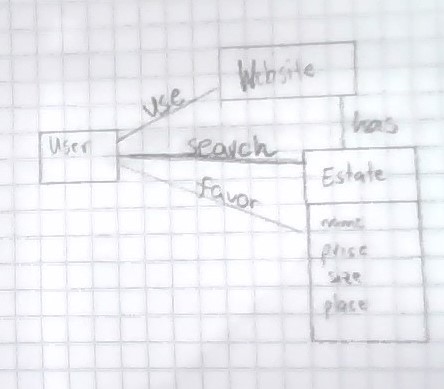 Website
use
has
User
search
Estate
favor
name
prise
size
place